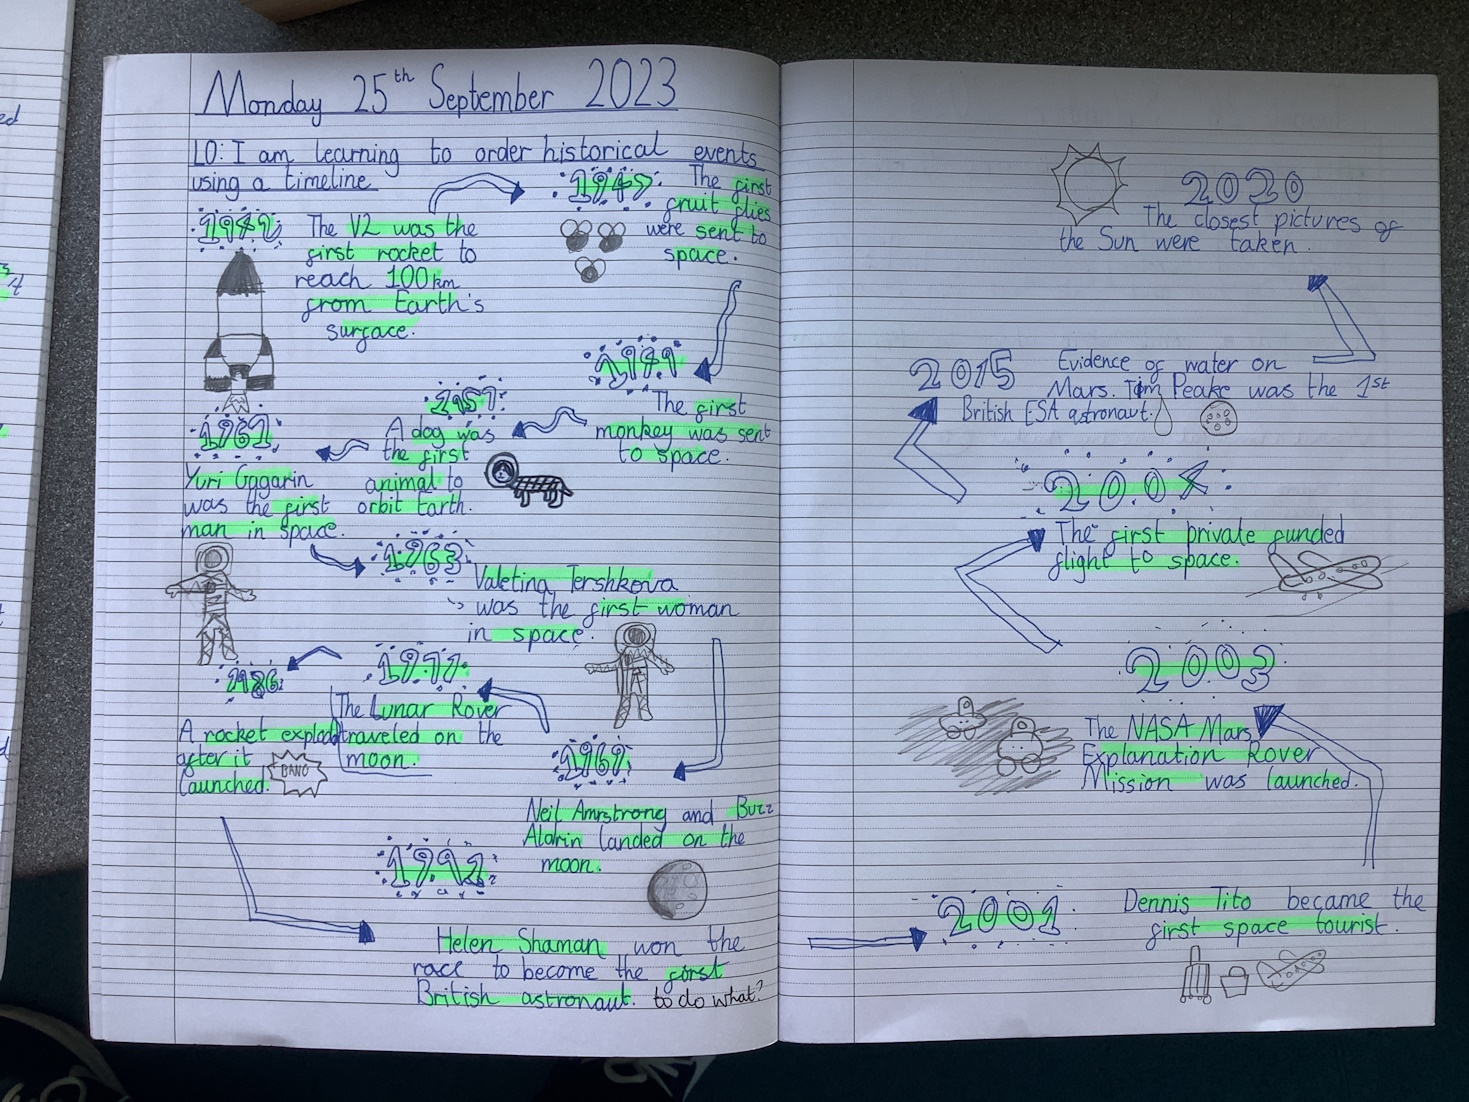 Monday 25th September 2023
LO: I am learning to order historical events
using a timeline
1942
The V2 was the
first rocket to
reach 100km
from Earth's
surface.
1947
The first
fruit flies
were sent to
space.
1949
The first
monkey was sent
to space.
1957
A dog was
the first
animal to
orbit Earth.
1961
Yuri Gagarin
was the first
man in space.
1963
Valetina Tershkova
was the first woman
in space.
1969
Neil Amrstrong and Buzz
Aldrin landed on the
moon.
1971
The Lunar Rover
traveled on the
moon.
1986
A rocket explod
after it
launched.
BANG
1991
Helen Shaman won the
race to become the first
British astronaut. to do what?
2001
Dennis Tito became the
first space tourist.
2003
The NASA Mars
Explanation Rover
Mission was launched.
2004
The first private funded
flight to space.
2015
Evidence of water on
Mars. Tim Peake was the 1st
British ESA astronaut.
2020
The closest pictures of
the Sun were taken.